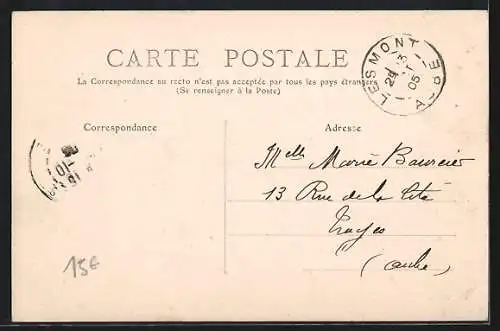 CARTE POSTALE
La Correspondance au recto n'est pas acceptée par tous les pays étrangers
(Se renseigner à la Poste)
LESMONT
AUBE
24
05
Correspondance
Adresse
Melle Marie
13 Rue de la Cité
Troyes
(Aube)
15€